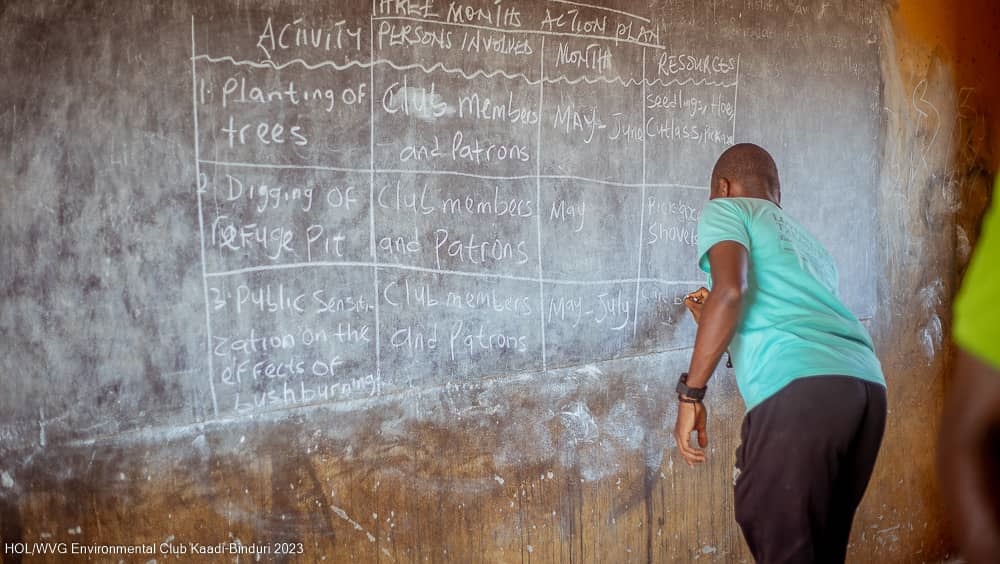 THREE MONTHS ACTION PLAN
ACTIVITY
PERSONS INVOLVED
MONTH
RESOURCES
1. Planting of
trees
Club members
and Patrons
May-June
Seedlings, Hoe,
Cutlass,
2. Digging of
Refuge Pit
Club members
and Patrons
May
Shovels
3. Public Sensiti-
zation on the
effects of
bushburning.
Club members
and Patrons
May-July
HOL/WVG Environmental Club Kaadi-Binduri 2023